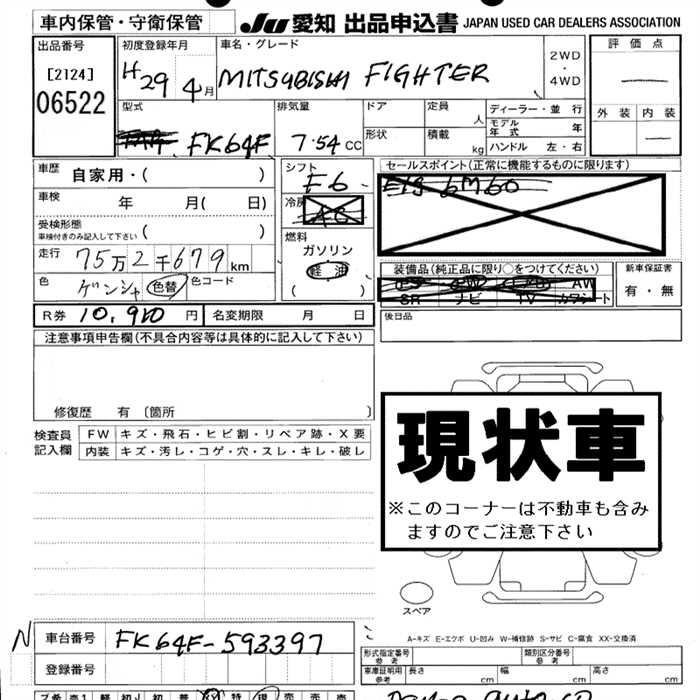 車内保管・守衛保管
JU 愛知 出品申込書 JAPAN USED CAR DEALERS ASSOCIATION
出品番号
[2124]
06522
初度登録年月
H29 4月
車名・グレード
MITSUBISHI FIGHTER
2WD
・
4WD
評価点
外装 内装
型式
FK64F
排気量
7.54 CC
ドア
形状
定員
人
積載
kg
ディーラー・並行
モデル年式 年
ハンドル 左・右
車歴
自家用・( )
車検 年 月( 日)
受検形態
車検付きのみ記入して下さい ( )
走行 75万2千679km
色 ゲンシャ 色替 色コード
シフト
F6
冷房
AC
燃料
ガソリン
軽油
( )
セールスポイント(正常に機能するものに限ります)
6M60
装備品(純正品に限り○をつけてください)
PS PW AW
SR ナビ TV カワシート
新車保証書
有・無
R券 10,910円 名変期限 月 日
後日品
注意事項申告欄(不具合内容等は具体的に記入して下さい)
修復歴 有 〔箇所 〕
検査員
記入欄
FW キズ・飛石・ヒビ割・リペア跡・X要
内装 キズ・汚レ・コゲ・穴・スレ・キレ・破レ
現状車
※このコーナーは不動車も含み
ますのでご注意下さい
スペア
A-キズ E-エクボ U-凹み W-補修跡 S-サビ C-腐食 XX-交換済
N
車台番号 FK64F-593397
登録番号
型式指定番号
参考
類別区分番号
参考
車庫証明用
参考
長さ cm 幅 cm 高さ cm